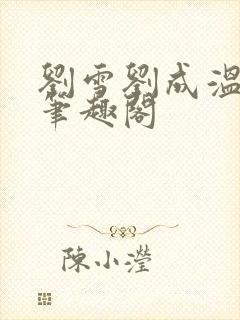 劉雪劉成溫
筆趣閣
陳小瀅